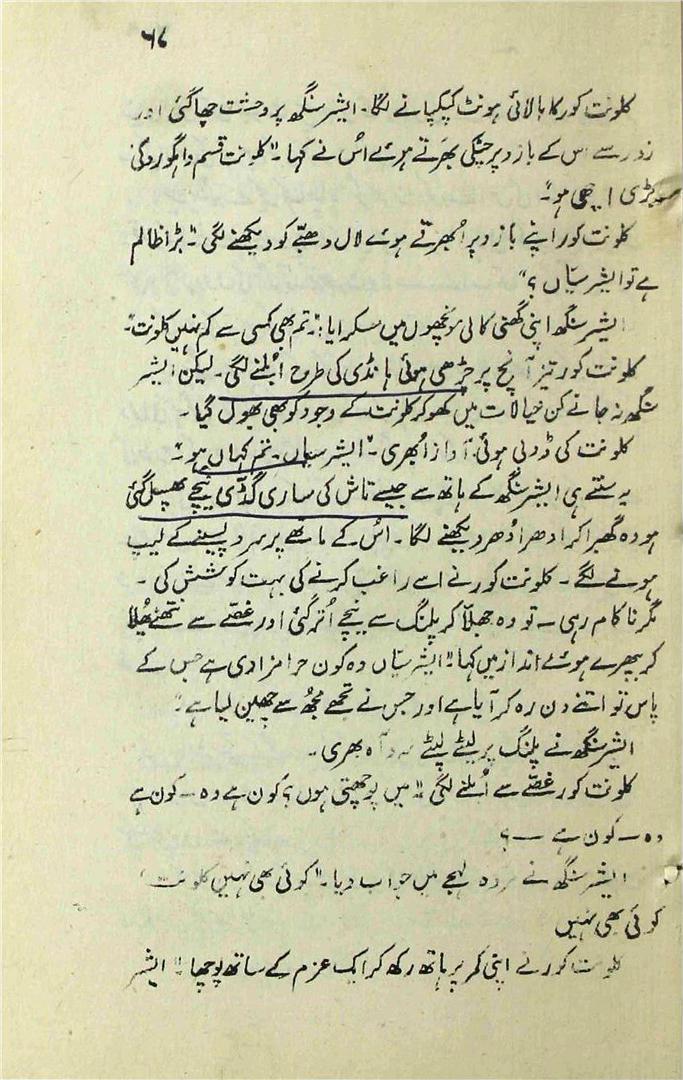 ۶۷
کلونت کور کا بالائی ہونٹ کپکپانے لگا۔ ایشر سنگھ پر وحشت چھا گئی اور
زور سے اس کے بازو پر چٹکی بھرتے ہوئے اُس نے کہا۔ "کلونت قسم واہگورو کی
بڑی اچھی ہو"۔
کلونت کور اپنے بازو پر اُبھرتے ہوئے لال دھبّے کو دیکھنے لگی "۔ بڑا ظالم
ہے تو ایشر سیّاں ؟"
ایشر سنگھ اپنی گھنی کالی مونچھوں میں مسکرایا: "۔ تم بھی کسی سے کم نہیں کلونت"۔
کلونت کور تیز آنچ پر چڑھی ہوئی ہانڈی کی طرح اُبلنے لگی۔ لیکن ایشر
سنگھ نہ جانے کن خیالات میں کھو کر کلونت کے وجود کو بھی بھول گیا۔
کلونت کی ڈوبی ہوئی آواز اُبھری۔ "ایشر سیاں۔ تم کہاں ہو"۔
یہ سنتے ہی ایشر سنگھ کے ہاتھ سے جیسے تاش کی ساری گڈی نیچے پھسل گئی
ہو وہ گھبرا کر ادھر اُدھر دیکھنے لگا۔ اُس کے ماتھے پر سرد پسینے کے لیپ
ہونے لگے۔ کلونت کور نے اسے راغب کرنے کی بہت کوشش کی۔
مگر ناکام رہی — تو وہ جھلّا کر پلنگ سے نیچے اُتر گئی اور غصے سے نتھنے پھُلا
کر بپھرے ہوئے انداز میں کہا: "ایشر سیّاں وہ کون حرامزادی ہے جس کے
پاس تو اتنے دن رہ کر آیا ہے اور جس نے تجھے مجھُ سے چھین لیا ہے"۔
ایشر سنگھ نے پلنگ پر لیٹے لیٹے سرد آہ بھری۔
کلونت کور غصّے سے اُبلنے لگی "میں پوچھتی ہوں؟ کون ہے وہ — کون ہے
وہ — کون ہے — ؟
ایشر سنگھ نے مردہ لہجے میں جواب دیا۔ "کوئی بھی نہیں کلونت
کوئی بھی نہیں
کلونت کور نے اپنی کمر پر ہاتھ رکھ کر ایک عزم کے ساتھ پوچھا "ایشر